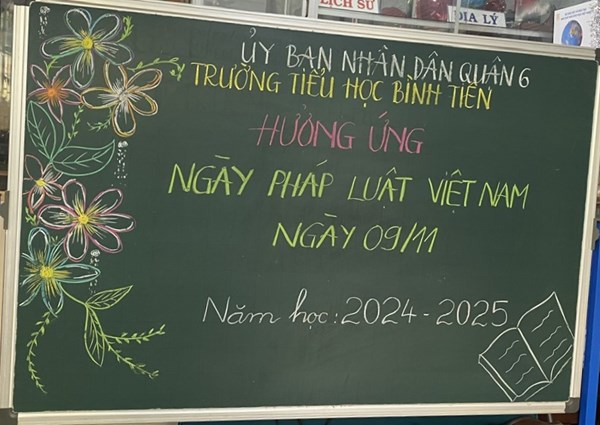 LỊCH SỬ
ĐỊA LÝ
ỦY BAN NHÂN DÂN QUẬN 6
TRƯỜNG TIỂU HỌC BÌNH TIÊN
HƯỞNG ỨNG
NGÀY PHÁP LUẬT VIỆT NAM
NGÀY 09/11
Năm học: 2024 - 2025